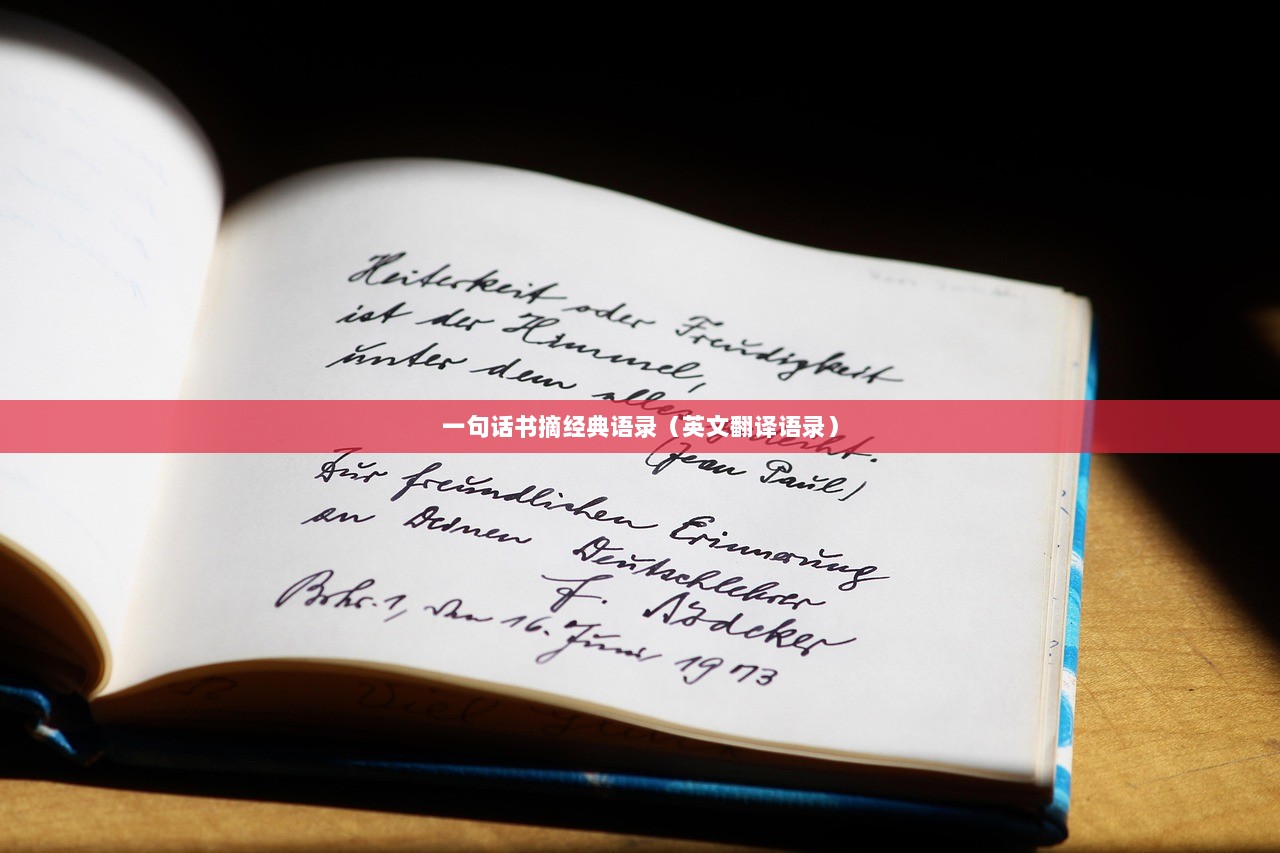 Heiterkeit oder Freudigkeit
ist der Himmel,
unter dem alles
一句话书摘经典语录（英文翻译语录）
(Jean Paul)
Zur freundlichen Erinnerung
an Deinen Deutschlehrer
F.
den 16. Juni 1973